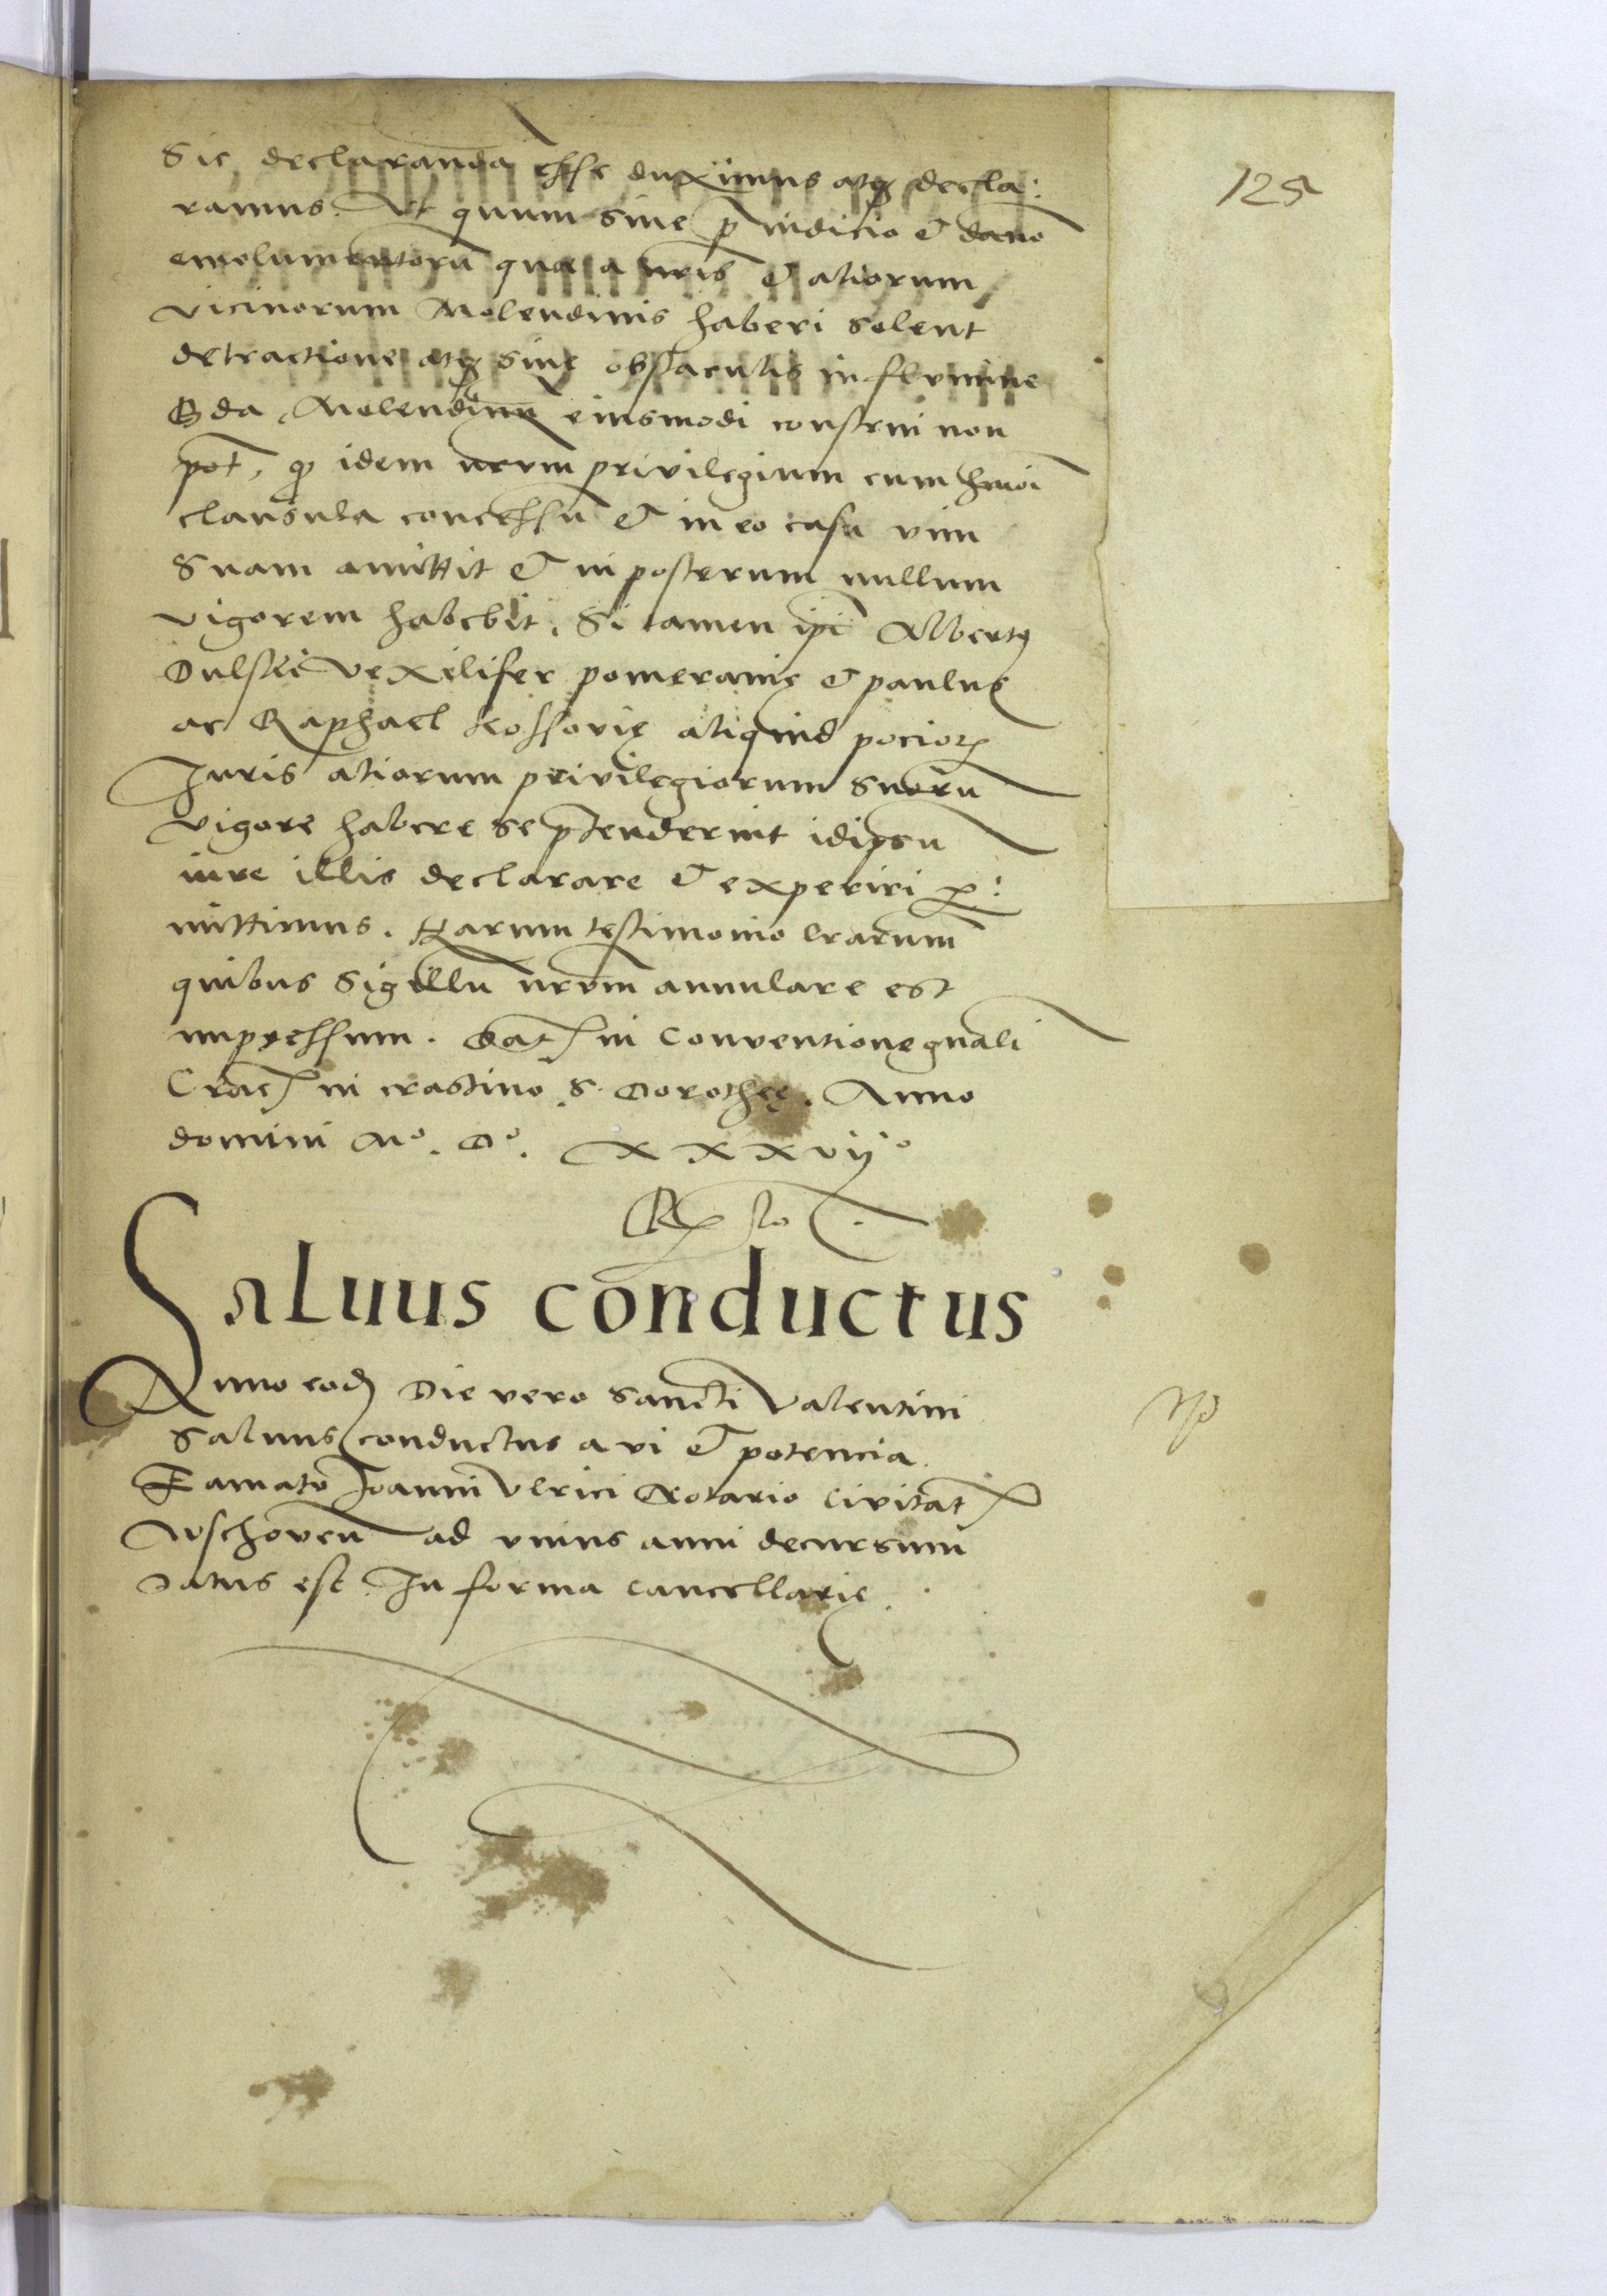 125
Sic declaranda esse duximus atq decla:
ramus. Ut quum sine p iudicio et dano
emolumentoru que a nris et aliorum
vicinorum Molendinis haberi solent
detractione atq sine obstaculis in flumine
Bda Molendinu eiusmodi construi non
pot, q idem nrum privilegium cum hmoi
clausula concessu et in eo casu vim
suam amittit et in posterum nullum
vigorem habebit. Si tamen ipi Albertus
Dulski vexilifer pomeranie et paulus
ac Raphael Kossovie aliquid pocioris
Juris aliorum privilegiorum suoru
vigore habere se ptenderint idipsu
iure illis declarare et experiri per:
mittimus. Harum testimonio lrarum
quibus sigillu nrum annulare est
impressum. Dat in Conventione gnali
Crac in crastino S. Dorothee. Anno
domini Mº. Dº. xxxvijº
Saluus conductus
Anno eod Die vero Sancti Valentini
Saluus conductus a vi et potencia
Famato Joanni Ulrici Notario Civitat
Wschoven ad unius anni decursum
datus est In forma cancellarie.